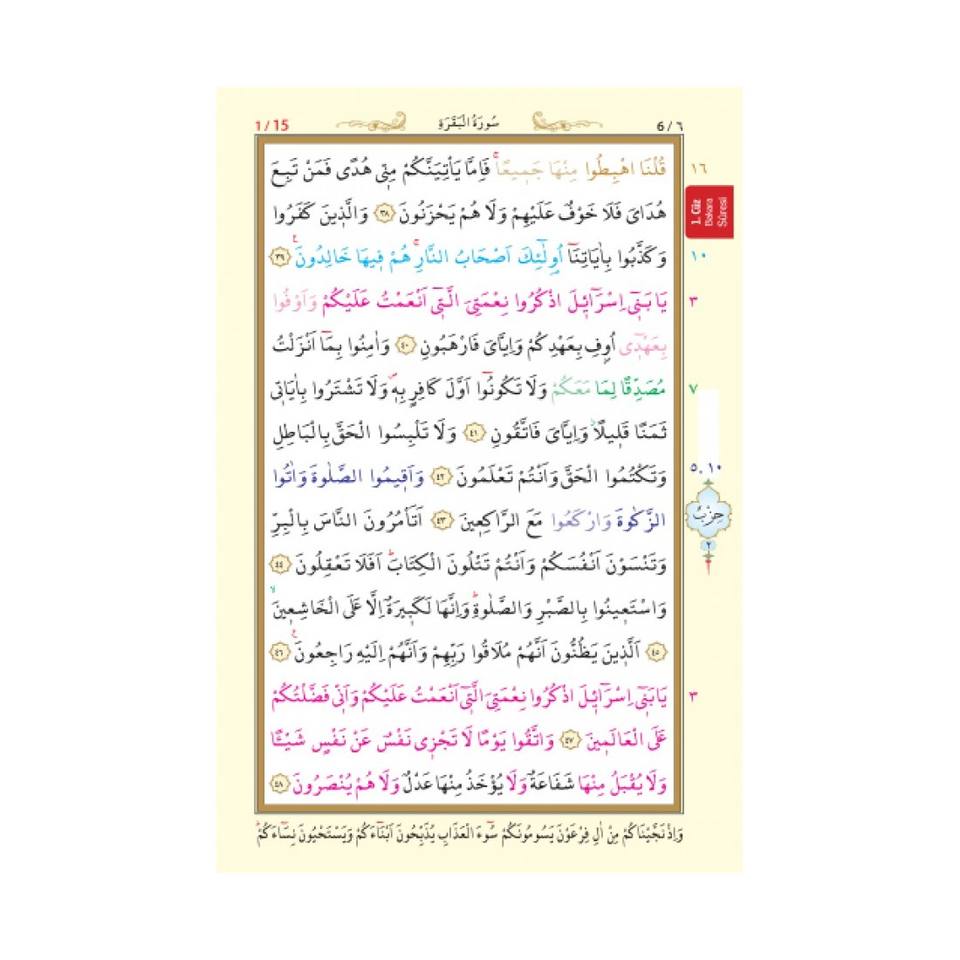 1 / 15 سُورَةُ الْبَقَرَةِ 6 / ٦
قُلْنَا اهْبِطُوا مِنْهَا جَمٖيعًاۚ فَاِمَّا يَأْتِيَنَّكُمْ مِنّٖى هُدًى فَمَنْ تَبِعَ ١٦
هُدَاىَ فَلَا خَوْفٌ عَلَيْهِمْ وَلَا هُمْ يَحْزَنُونَ ﴿٣٨﴾ وَالَّذٖينَ كَفَرُوا
1. Cüz
Bakara
Sûresi
وَكَذَّبُوا بِاٰيَاتِنَٓا اُولٰٓئِكَ اَصْحَابُ النَّارِۚ هُمْ فٖيهَا خَالِدُونَۚ ﴿٣٩﴾ ١٠
يَا بَنٖٓى اِسْرَٓائٖلَ اذْكُرُوا نِعْمَتِىَ الَّتٖٓى اَنْعَمْتُ عَلَيْكُمْ وَاَوْفُوا ٣
بِعَهْدٖٓى اُوفِ بِعَهْدِكُمْ وَاِيَّاىَ فَارْهَبُونِ ﴿٤٠﴾ وَاٰمِنُوا بِمَٓا اَنْزَلْتُ
مُصَدِّقًا لِمَا مَعَكُمْ وَلَا تَكُونُٓوا اَوَّلَ كَافِرٍ بِهٖࣕ وَلَا تَشْتَرُوا بِاٰيَاتٖى ٧
ثَمَنًا قَلٖيلًاؗ وَاِيَّاىَ فَاتَّقُونِ ﴿٤١﴾ وَلَا تَلْبِسُوا الْحَقَّ بِالْبَاطِلِ
وَتَكْتُمُوا الْحَقَّ وَاَنْتُمْ تَعْلَمُونَ ﴿٤٢﴾ وَاَقٖيمُوا الصَّلٰوةَ وَاٰتُوا ٥،١٠
الزَّكٰوةَ وَارْكَعُوا مَعَ الرَّاكِعٖينَ ﴿٤٣﴾ اَتَأْمُرُونَ النَّاسَ بِالْبِرِّ حِزْبٌ
وَتَنْسَوْنَ اَنْفُسَكُمْ وَاَنْتُمْ تَتْلُونَ الْكِتَابَؕ اَفَلَا تَعْقِلُونَ ﴿٤٤﴾ ٢
وَاسْتَعٖينُوا بِالصَّبْرِ وَالصَّلٰوةِؕ وَاِنَّهَا لَكَبٖيرَةٌ اِلَّا عَلَى الْخَاشِعٖينَۙ
﴿٤٥﴾ اَلَّذٖينَ يَظُنُّونَ اَنَّهُمْ مُلَاقُوا رَبِّهِمْ وَاَنَّهُمْ اِلَيْهِ رَاجِعُونَۚ ﴿٤٦﴾
يَا بَنٖٓى اِسْرَٓائٖلَ اذْكُرُوا نِعْمَتِىَ الَّتٖٓى اَنْعَمْتُ عَلَيْكُمْ وَاَنّٖى فَضَّلْتُكُمْ ٣
عَلَى الْعَالَمٖينَ ﴿٤٧﴾ وَاتَّقُوا يَوْمًا لَا تَجْزٖى نَفْسٌ عَنْ نَفْسٍ شَيْـًٔا
وَلَا يُقْبَلُ مِنْهَا شَفَاعَةٌ وَلَا يُؤْخَذُ مِنْهَا عَدْلٌ وَلَا هُمْ يُنْصَرُونَ ﴿٤٨﴾
وَاِذْ نَجَّيْنَاكُمْ مِنْ اٰلِ فِرْعَوْنَ يَسُومُونَكُمْ سُٓوءَ الْعَذَابِ يُذَبِّحُونَ اَبْنَٓاءَكُمْ وَيَسْتَحْيُونَ نِسَٓاءَكُمْؕ